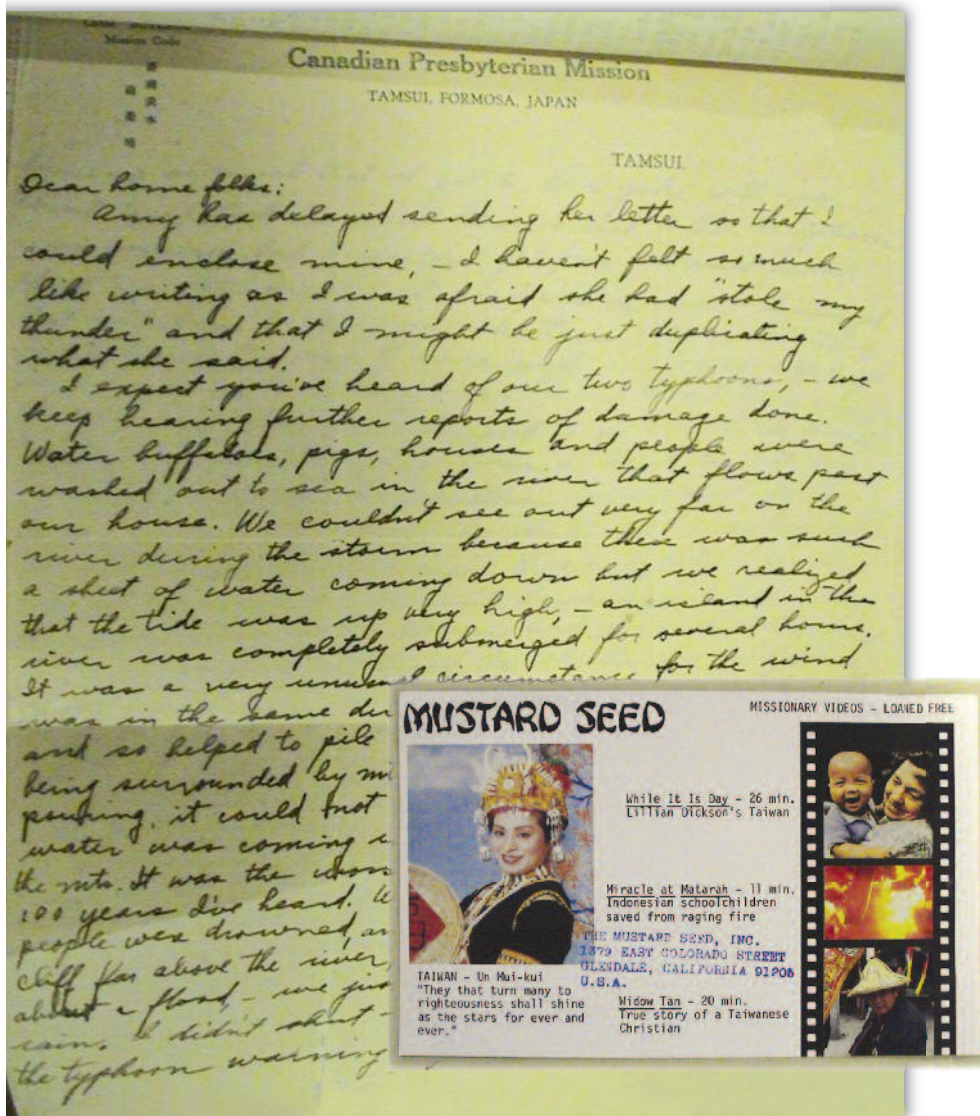 Mission Code
Canadian Presbyterian Mission
TAMSUI, FORMOSA, JAPAN
TAMSUI.
Dear home folks:
Amy has delayed sending her letter so that I
could enclose mine, - I haven't felt so much
like writing as I was afraid she had "stole my
thunder" and that I might be just duplicating
what she said.
I expect you've heard of our two typhoons, - we
keep hearing further reports of damage done.
Water buffalos, pigs, houses and people were
washed out to sea in the river that flows past
our house. We couldn't see out very far on the
river during the storm because there was such
a sheet of water coming down but we realized
that the tide was up very high, - an island in the
river was completely submerged for several hours.
It was a very unusual circumstance for the wind
was in the same
and so helped to pile
being surrounded by
pouring, it could not
water was coming
the mts. It was the
100 years I've heard.
people were drowned,
cliff far above the river
about a flood, - we
rain. I didn't
the typhoon warning
MUSTARD SEED
MISSIONARY VIDEOS - LOANED FREE
While It Is Day - 26 min.
Lillian Dickson's Taiwan
Miracle at Matarah - 11 min.
Indonesian schoolchildren
saved from raging fire
THE MUSTARD SEED, INC.
1379 EAST COLORADO STREET
GLENDALE, CALIFORNIA 91205
U.S.A.
Widow Tan - 20 min.
True story of a Taiwanese
Christian
TAIWAN - Un Mui-kui
"They that turn many to
righteousness shall shine
as the stars for ever and
ever."